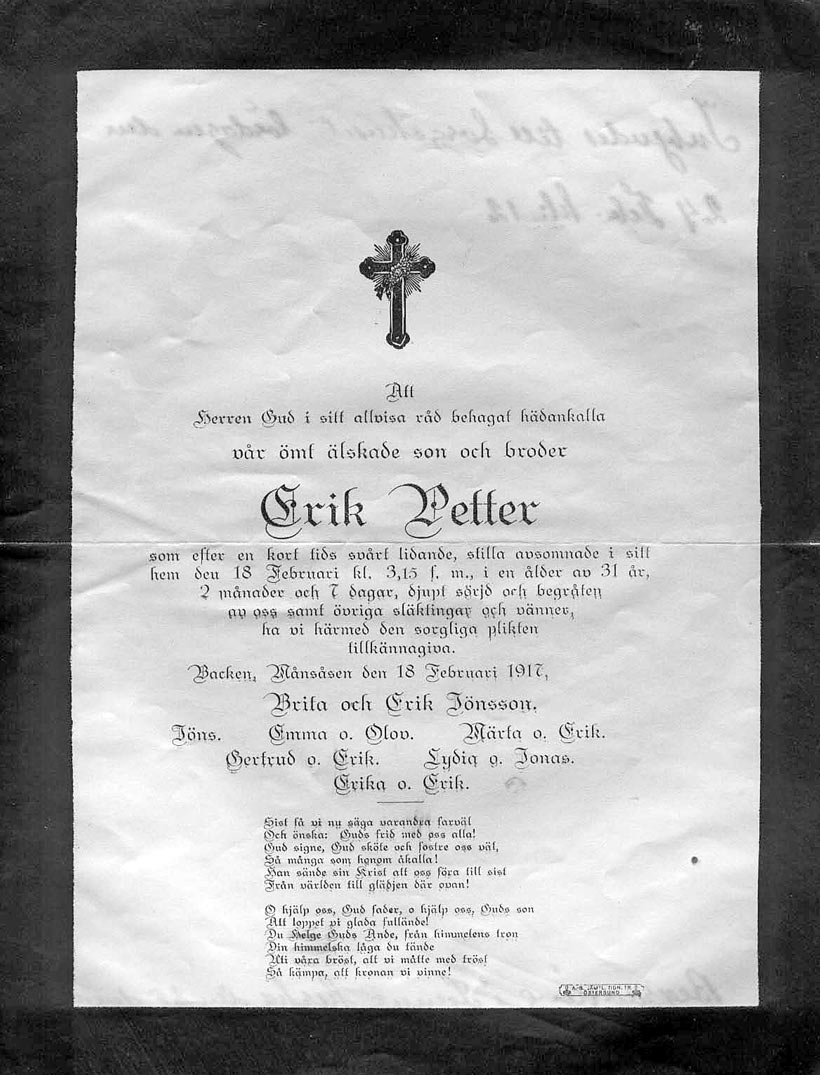 Inbjudes till
24 Feb. kl. 12
Att
Herren Gud i sitt allvisa råd behagat hädankalla
vår ömt älskade son och broder
Erik Petter
som efter en kort tids svårt lidande, stilla avsomnade i sitt
hem den 18 Februari kl. 3,15 f. m., i en ålder av 31 år,
2 månader och 7 dagar, djupt sörjd och begråten
av oss samt övriga släktingar och vänner,
ha vi härmed den sorgliga plikten
tillkännagiva.
Backen, Månsåsen den 18 Februari 1917,
Brita och Erik Jönsson.
Jöns. Emma o. Olov. Märta o. Erik.
Gertrud o. Erik. Lydia o. Jonas.
Erika o. Erik.
Sist få vi nu säga varandra farväl
Och önska: Guds frid med oss alla!
Gud signe, Gud sköte och fostre oss väl,
Så många som honom åkalla!
Han sände sin Krist att oss föra till sist
Från världen till glädjen där ovan!
O hjälp oss, Gud fader, o hjälp oss, Guds son
Att loppet vi glada fullände!
Du Helge Guds Ande, från himmelens tron
Din himmelska låga du tände
Uti våra bröst, att vi måtte med tröst
Så kämpa, att kronan vi vinne!
A.-B. JÄMTL. TIDN. TR.
ÖSTERSUND